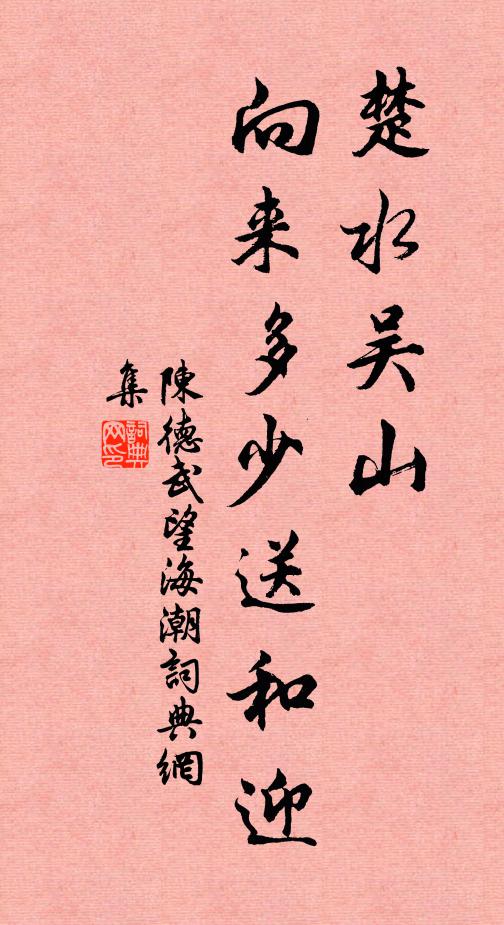 楚水吴山
向来多少送和迎
陳德武望海潮詞典網
集
詞典
网印